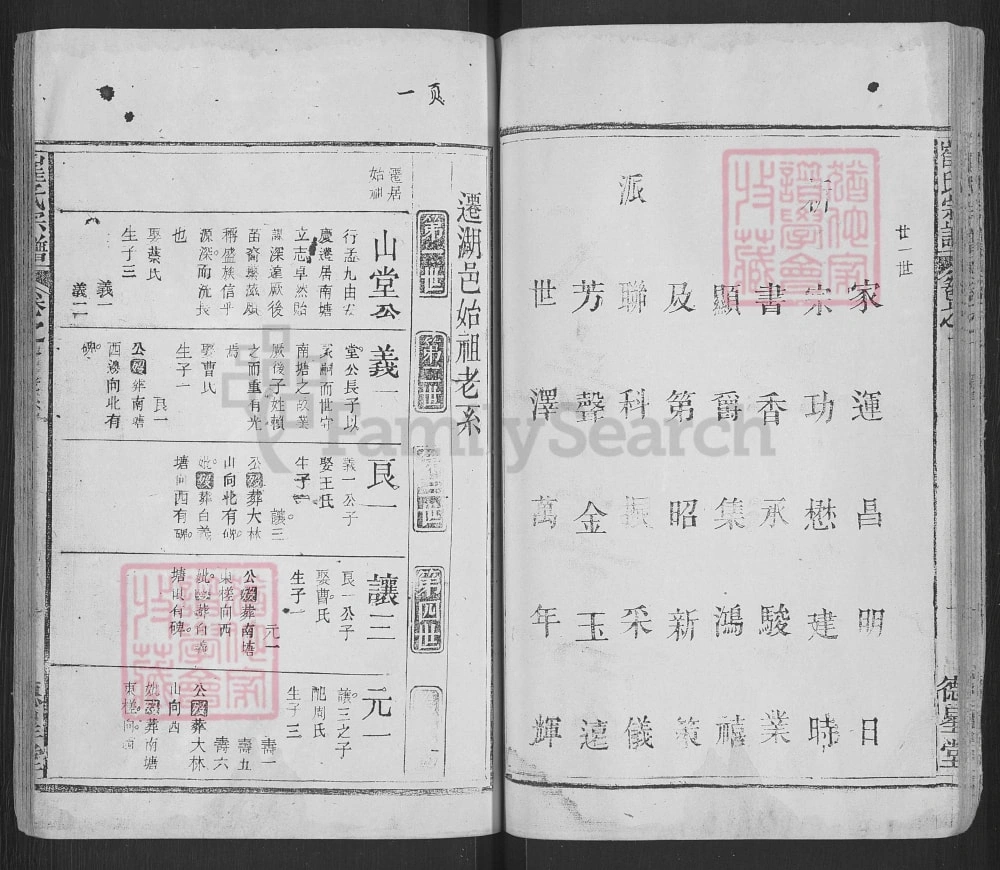 崔氏宗譜
德星堂
廿一世
新
派
家運昌明日
宋功懋建時
書香承駿業
顯爵集鴻禧
及第昭新策
聯科振采儀
芳聲金玉遠
世澤萬年輝
一頁
遷湖邑始祖老系
第一世
第二世
第三世
第四世
遷居
始祖
山堂公
行孟九由安
慶遷居南塘
立志卓然貽
謀深遠厥後
苗裔繁盛咸
稱盛族信乎
源深而流長
也
娶葉氏
生子三
義一
義二
義一
堂公長子以
南塘之故業
厥後子姓賴
之而重有光
焉
娶曹氏
生子一
良一
公歿葬南塘
西邊向北有
碑
良一
義一公子
娶王氏
生子一
讓三
公歿葬大林
山向北有碑
妣歿葬白義
塘向西有碑
讓三
良一公子
娶曹氏
生子一
元一
公歿葬南塘
東樓向西
妣歿葬白義
塘向有碑
元一
讓三之子
配周氏
生子三
壽一
壽五
壽六
公歿葬大林
山向西
妣歿葬南塘
東樓向西
崔氏宗譜
FamilySearch